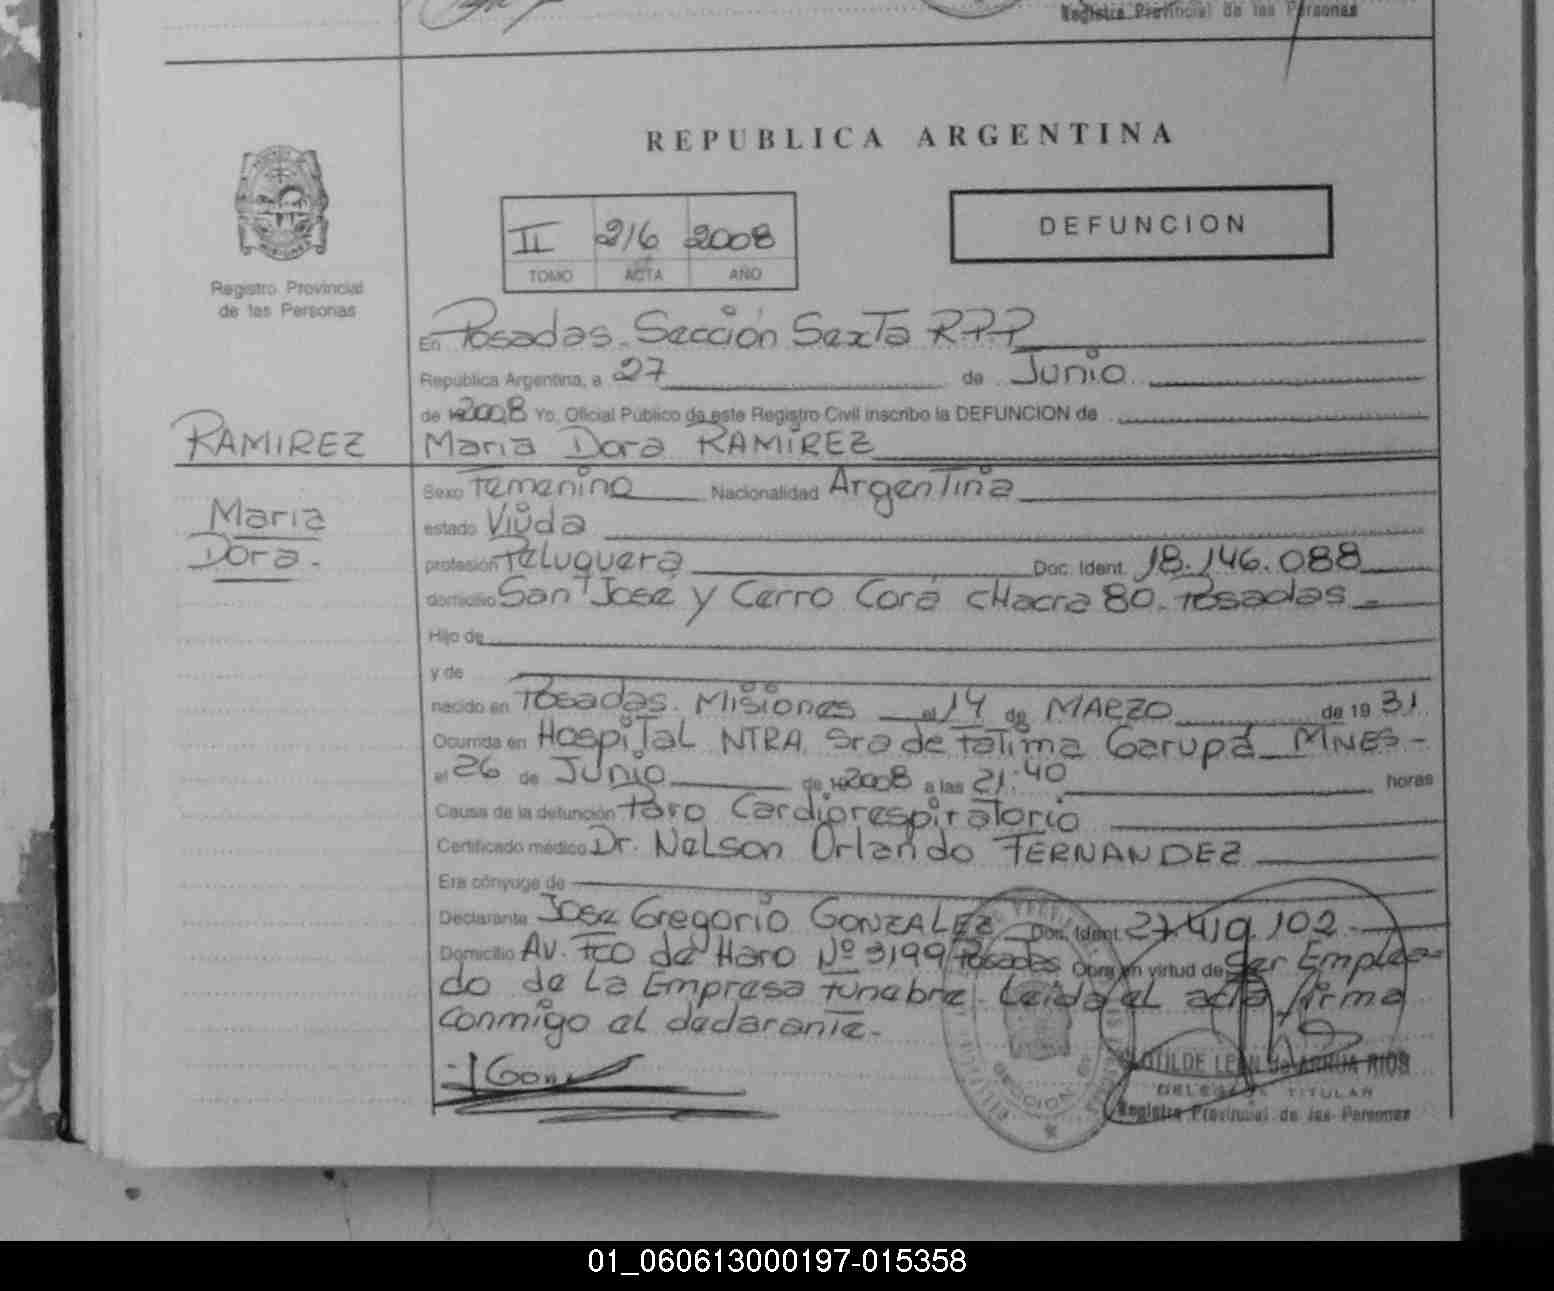 Registro Provincial de las Personas
REPUBLICA ARGENTINA
II 216 2008
TOMO ACTA AÑO
DEFUNCION
Registro Provincial
de las Personas
En Posadas. Sección Sexta R.P.P
República Argentina, a 27 de Junio
de 2008 Yo, Oficial Público de este Registro Civil inscribo la DEFUNCION de
RAMIREZ
Maria Dora RAMIREZ
Maria
Dora.
Sexo Femenino Nacionalidad Argentina
estado Viuda
profesión Peluquera Doc. Ident. 18.146.088
domicilio San José y Cerro Corá cHacra 80. Posadas
Hijo de
y de
nacido en Posadas. Misiones el 14 de MARZO de 19 31
Ocurrida en HospiTaL NTRA Sra de Fatima Garupá MNES-
el 26 de Junio de 2008 a las 21:40 horas
Causa de la defunción Paro Cardiorespiratorio
Certificado médico Dr. NeLson OrLando FERNANDEZ
Era cónyuge de
Declarante Jose Gregorio GONZALEZ Doc. Ident. 27.419.102
Domicilio Av. Fco de Haro Nº 3199 Posadas Obra en virtud de Ser Emplea-
do de La Empresa Fúnebre. Leida el acta, firma
conmigo el declarante.
DE ARRUA RIOS
DELEGADA TITULAR
Registro Provincial de las Personas
01_060613000197-015358